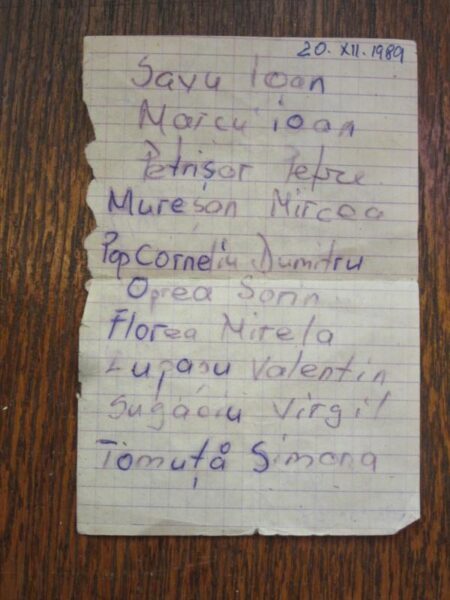 20. XII. 1989
Savu Ioan
Marcu Ioan
Petrișor Petre
Mureșan Mircea
Pop Corneliu Dumitru
Oprea Sorin
Florea Mirela
Lupașu Valentin
Virgil
Tomuță Simona